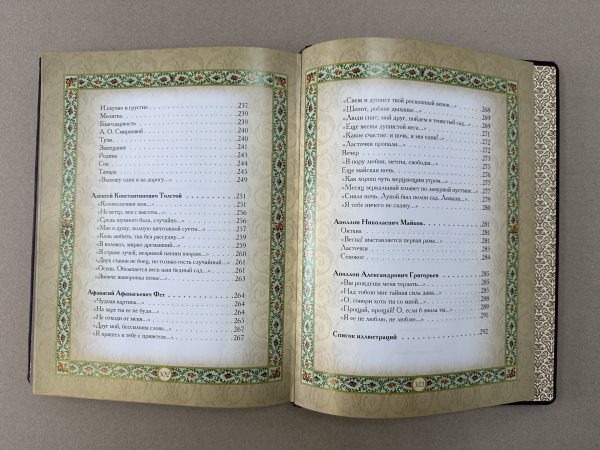 И скучно и грустно 237
Молитва 239
Благодарность 239
А. О. Смирновой 240
Тучи 240
Завещание 241
Родина 243
Сон 244
Тамара 245
«Выхожу один я на дорогу...» 249
Алексей Константинович Толстой 251
«Колокольчики мои...»
«Не ветер, вея с высоты...»
«Средь шумного бала, случайно...»
«Мне в душу, полную ничтожной суеты...»
«Коль любить, так без рассудку...»
«В колокол, мирно дремавший...»
«В стране лучей, незримой нашим взорам...»
«Двух станов не боец, но только гость случайный...»
«Осень. Обсыпается весь наш бедный сад...»
«Звонче жаворонка пенье...»
Афанасий Афанасьевич Фет 264
«Чудная картина... 264
«На заре ты ее не буди... 264
«Не отходи от меня...» 265
«Друг мой, бессильны слова...» 266
«Я пришел к тебе с приветом...» 267
302
«Свеж и душист твой роскошный венок...»
«Шепот, робкое дыханье... 268
«Люди спят; мой друг, пойдем в тенистый сад... 269
«Еще весны душистой нега...» 271
«Какое счастие: и ночь, и мы одни!» 271
«Ласточки пропали... 272
Вечер
Еще майская ночь
«В пору любви, мечты, свободы...»
«Как хорош чуть мерцающим утром...» 277
«Месяц зеркальный плывет по лазурной пустыне...»
«Сияла ночь. Луной был полон сад. Лежали... 279
«Я тебе ничего не скажу...» 280
Аполлон Николаевич Майков 281
Октава 281
«Весна! выставляется первая рама... 282
Ласточки 283
Сенокос 284
Аполлон Александрович Григорьев 285
«Вы рождены меня терзать... 285
«Над тобою мне тайная сила дана... 285
«О, говори хоть ты со мной... 288
«Прощай, прощай! О, если б знала ты... 289
«Я ее не люблю, не люблю... 291
Список иллюстраций 292
303